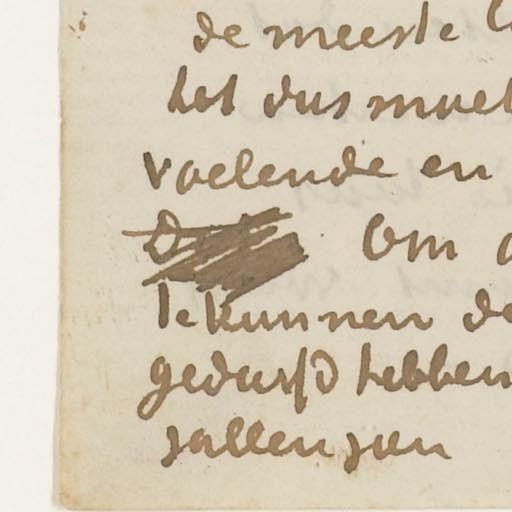 de meeste
het dus moet
voelende en
Om
te kunnen de
gedurfd hebben
zallen zan